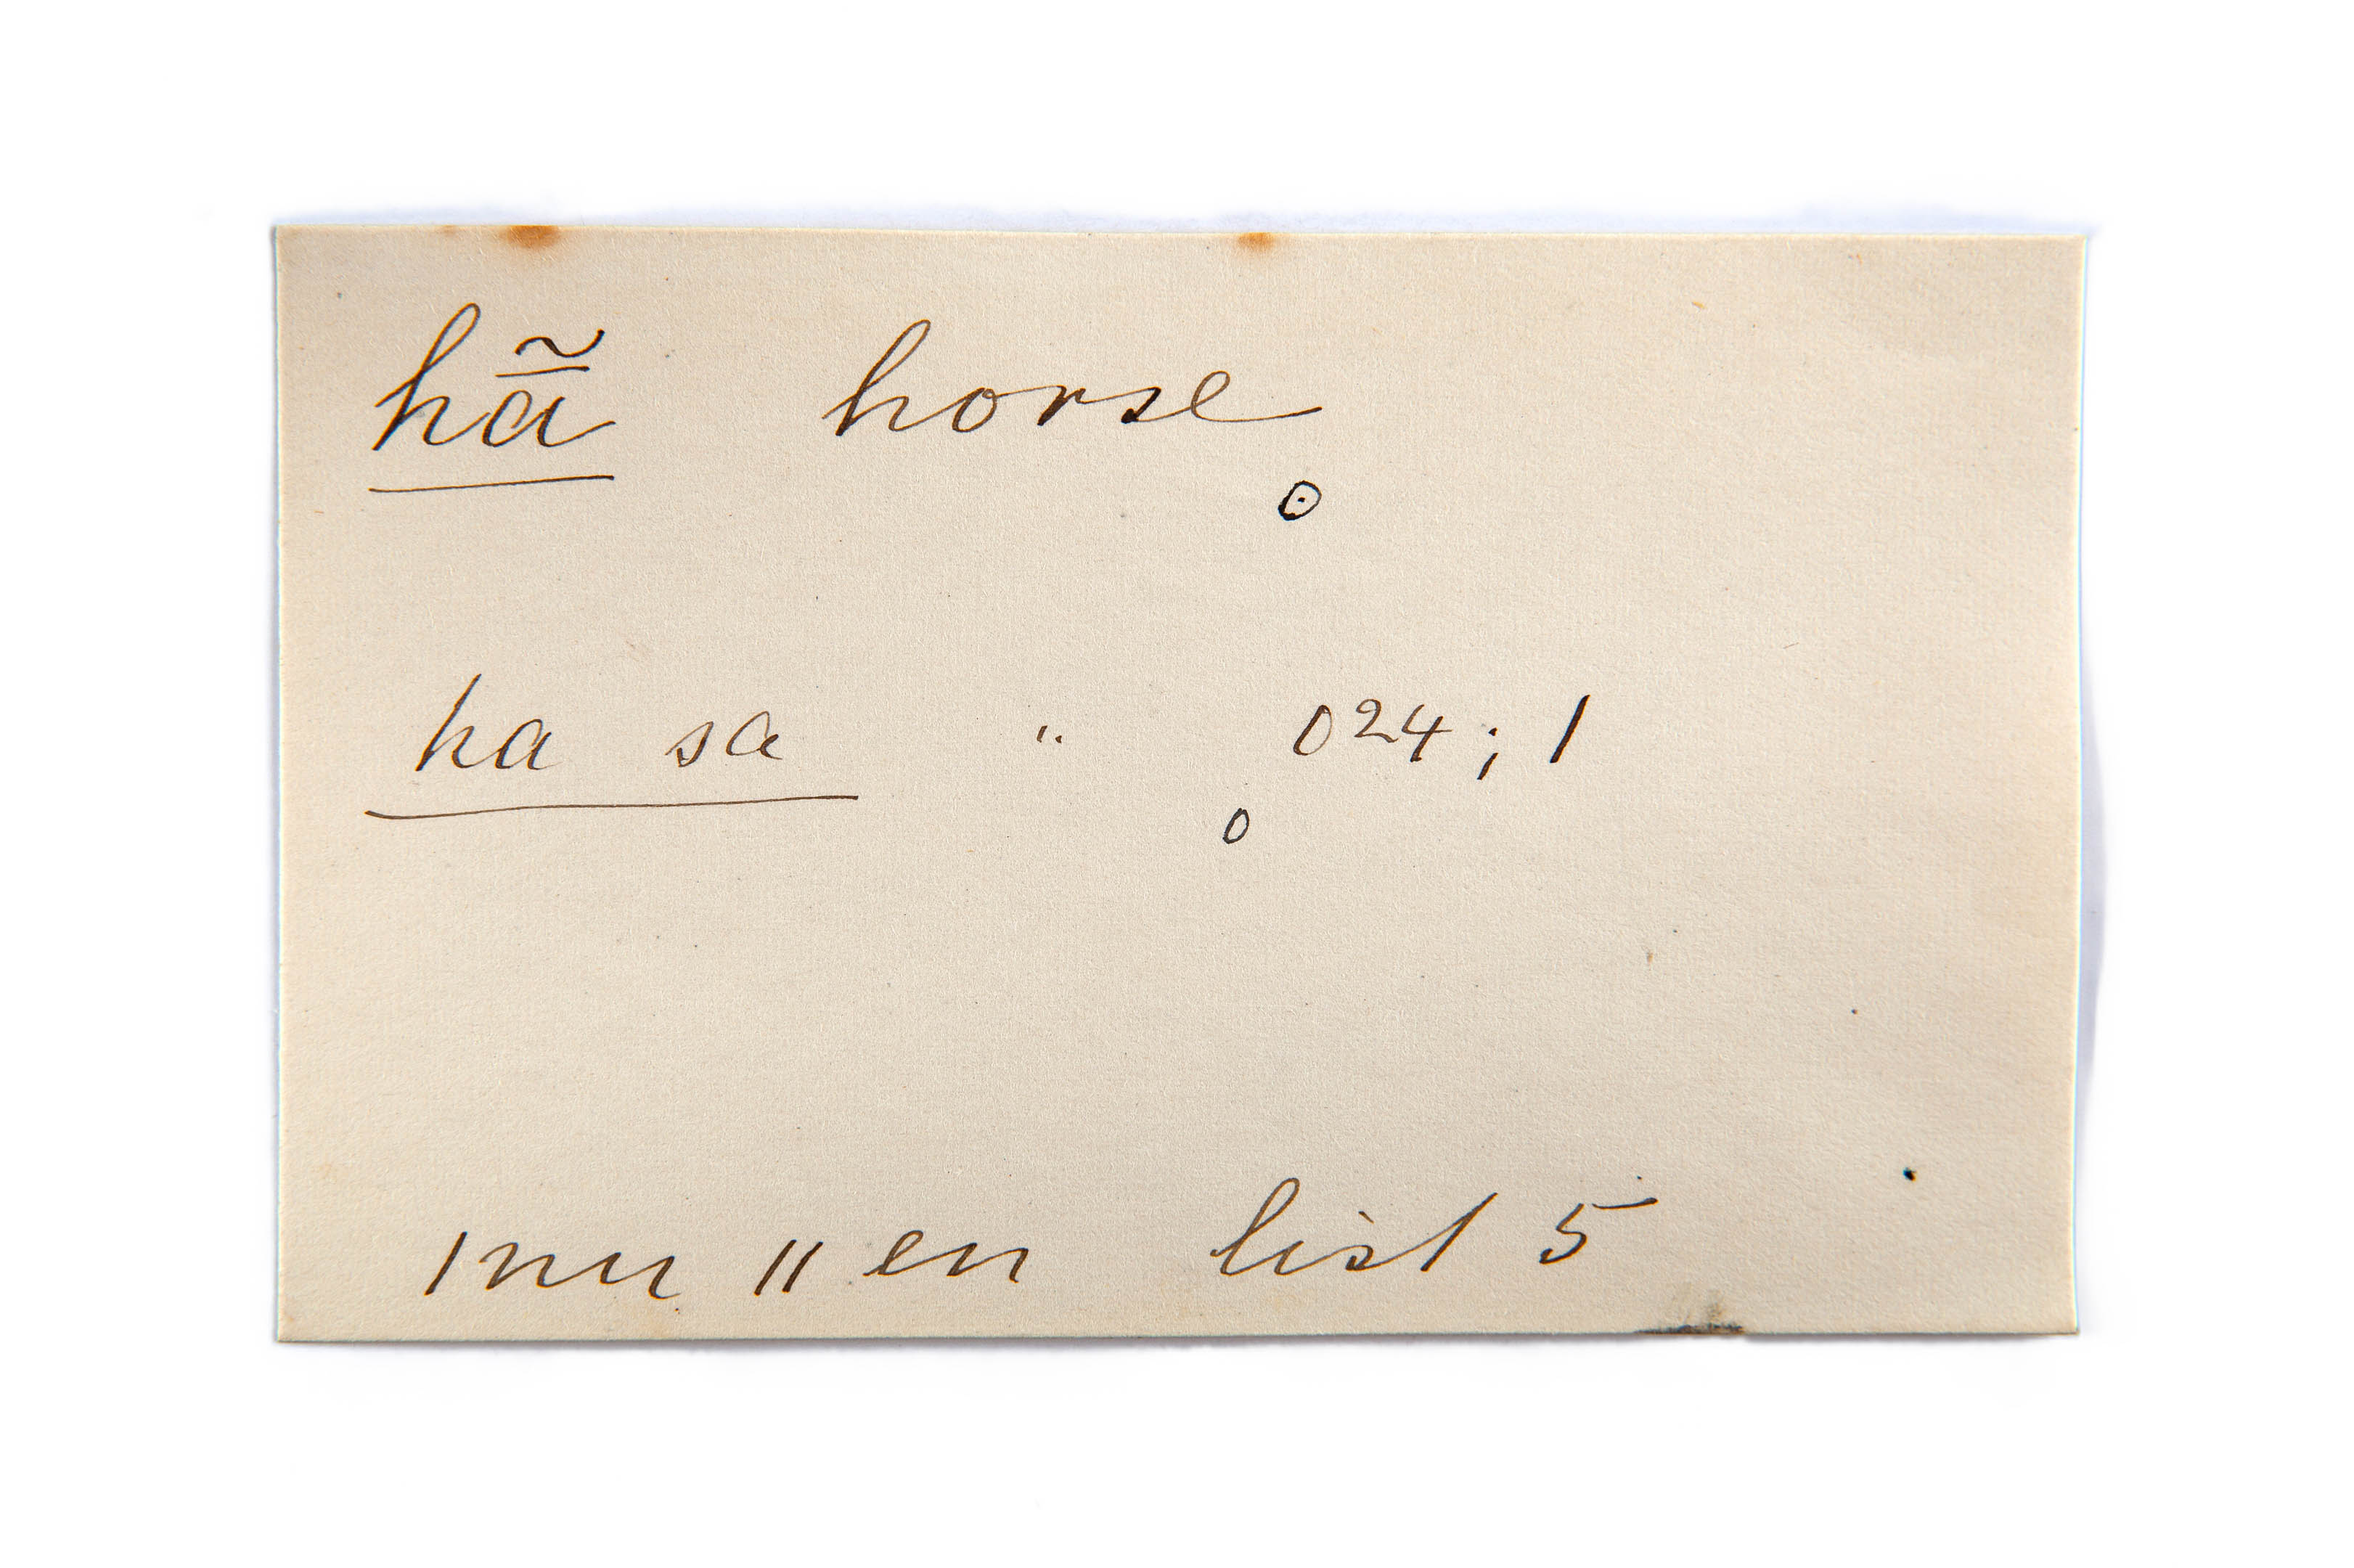 hā̃ horse
⊙
ha sa " 024; 1
o
|nu ||en list 5